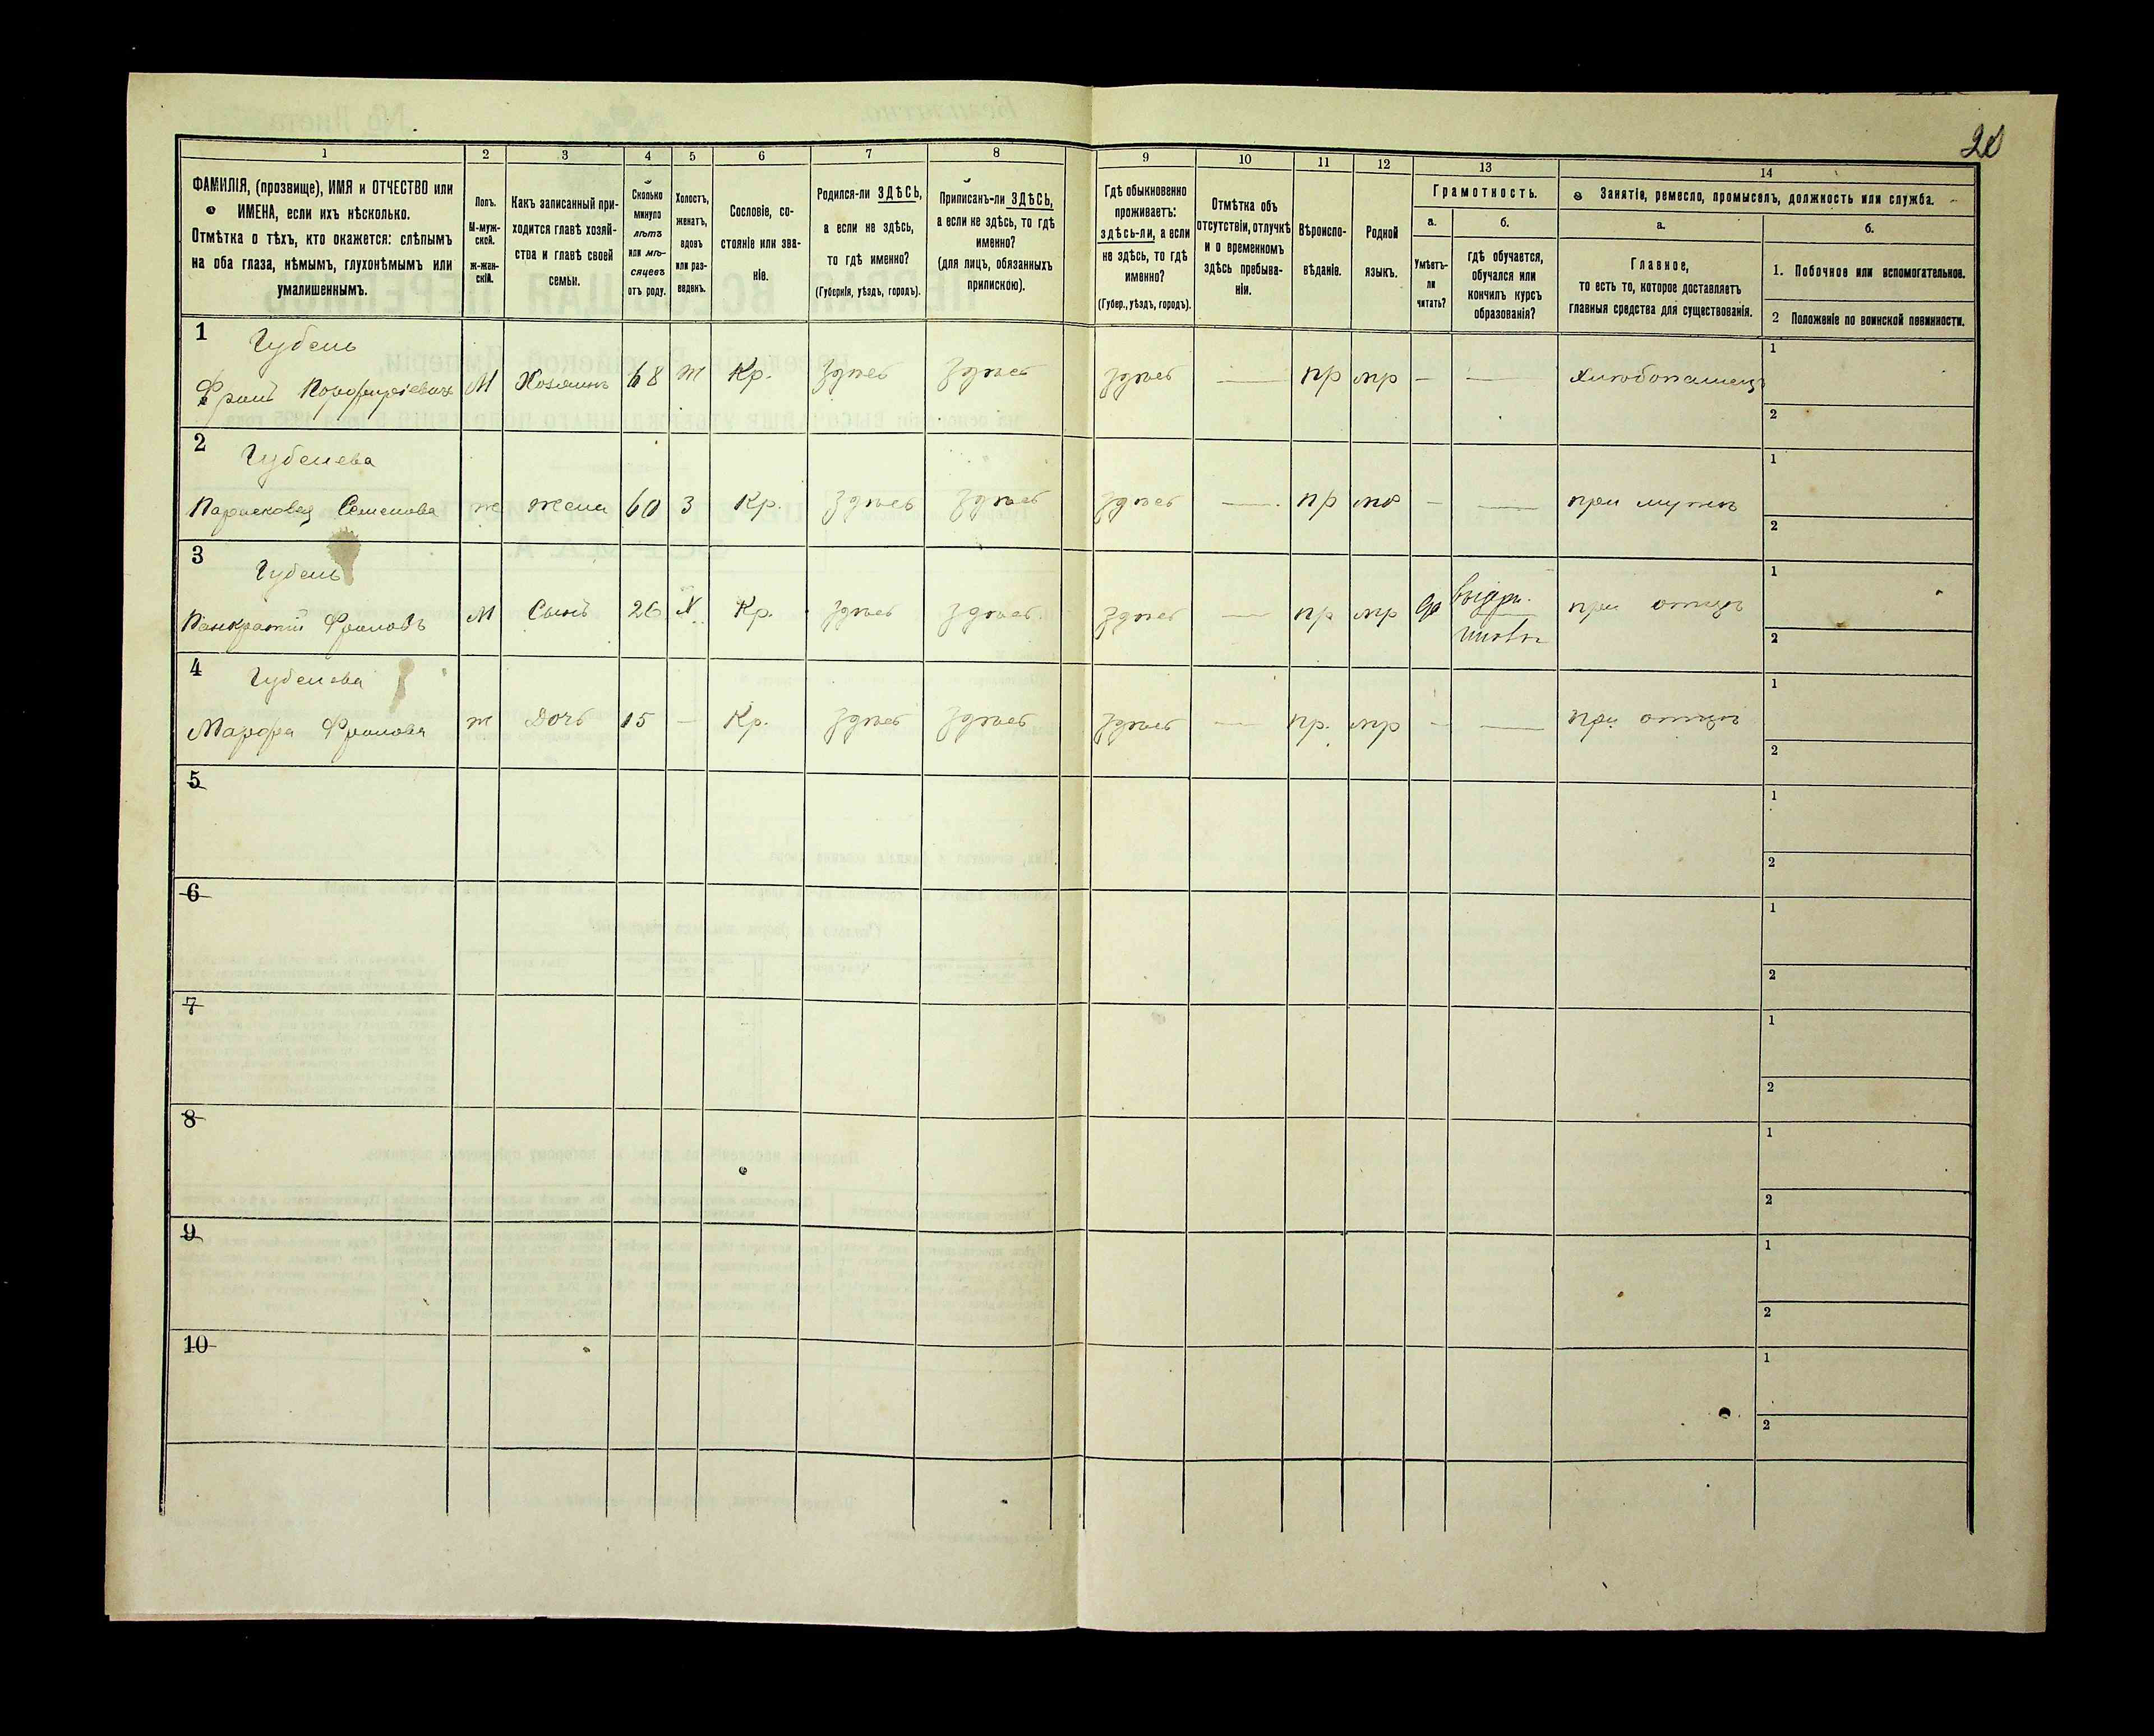 20
1
2
3
4
5
6
7
8
9
10
11
12
13
14
ФАМИЛІЯ, (прозвище), ИМЯ и ОТЧЕСТВО или
ИМЕНА, если ихъ нѣсколько.
Отмѣтка о тѣхъ, кто окажется: слѣпымъ
на оба глаза, нѣмымъ, глухонѣмымъ или
умалишеннымъ.
Полъ.
М-муж-
ской.
ж-жен-
скій.
Какъ записанный при-
ходится главѣ хозяй-
ства и главѣ своей
семьи.
Сколько
минуло
лѣтъ
или мѣ-
сяцевъ
отъ роду.
Холостъ,
женатъ,
вдовъ
или раз-
веденъ.
Сословіе, со-
стояніе или зва-
ніе.
Родился-ли ЗДѢСЬ,
а если не здѣсь,
то гдѣ именно?
(Губернія, уѣздъ, городъ).
Приписанъ-ли ЗДѢСЬ,
а если не здѣсь, то гдѣ
именно?
(для лицъ, обязанныхъ
припискою).
Гдѣ обыкновенно
проживаетъ:
здѣсь-ли, а если
не здѣсь, то гдѣ
именно?
(Губер., уѣздъ, городъ).
Отмѣтка объ
отсутствіи, отлучкѣ
и о временномъ
здѣсь пребыва-
ніи.
Вѣроиспо-
вѣданіе.
Родной
языкъ.
Грамотность.
а.
Умѣетъ-
ли
читать?
б.
гдѣ обучается,
обучался или
кончилъ курсъ
образованія?
Занятіе, ремесло, промыселъ, должность или служба.
а.
Главное,
то есть то, которое доставляетъ
главныя средства для существованія.
б.
1. Побочное или вспомогательное.
2 Положеніе по воинской повинности.
1
Губень
Фролъ Порфиріевичъ М Хозяинъ 68 ж Кр. здѣсь здѣсь здѣсь — пр мр — — хлѣбопашецъ
1
2
2
Губенева
Парасковея Семенова ж жена 60 З Кр. здѣсь здѣсь здѣсь — пр мр — — при мужѣ
1
2
3
Губень
Панкратій Фроловъ М Сынъ 26 Х Кр. здѣсь здѣсь здѣсь — пр мр да при отцѣ
1
2
4
Губенева
Марфа Фролова ж Дочь 15 — Кр. здѣсь здѣсь здѣсь — пр. мр — — при отцѣ
1
2
5
1
2
6
1
2
7
1
2
8
1
2
9
1
2
10
1
2